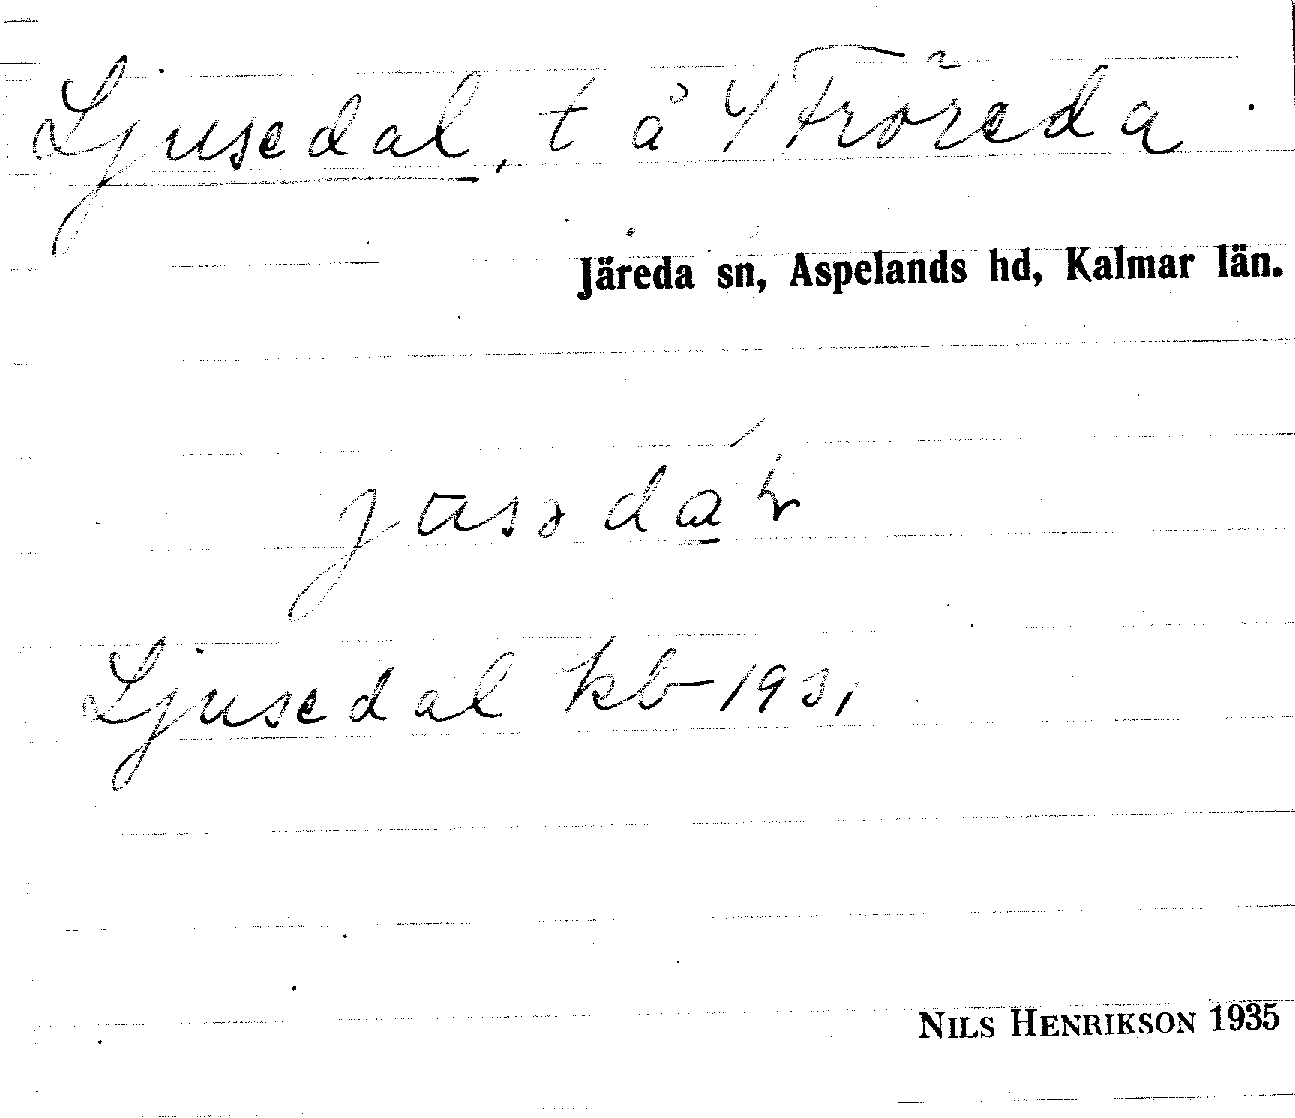 Ljusedal, t å 4 Fröreda
Järeda sn, Aspelands hd, Kalmar län.
Ljusedal kb 1931
NILS HENRIKSON 1935